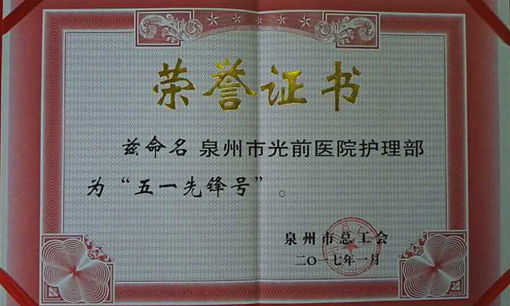 荣誉证书
兹命名 泉州市光前医院护理部
为“五一先锋号”。
泉州市总工会
二〇一七年一月